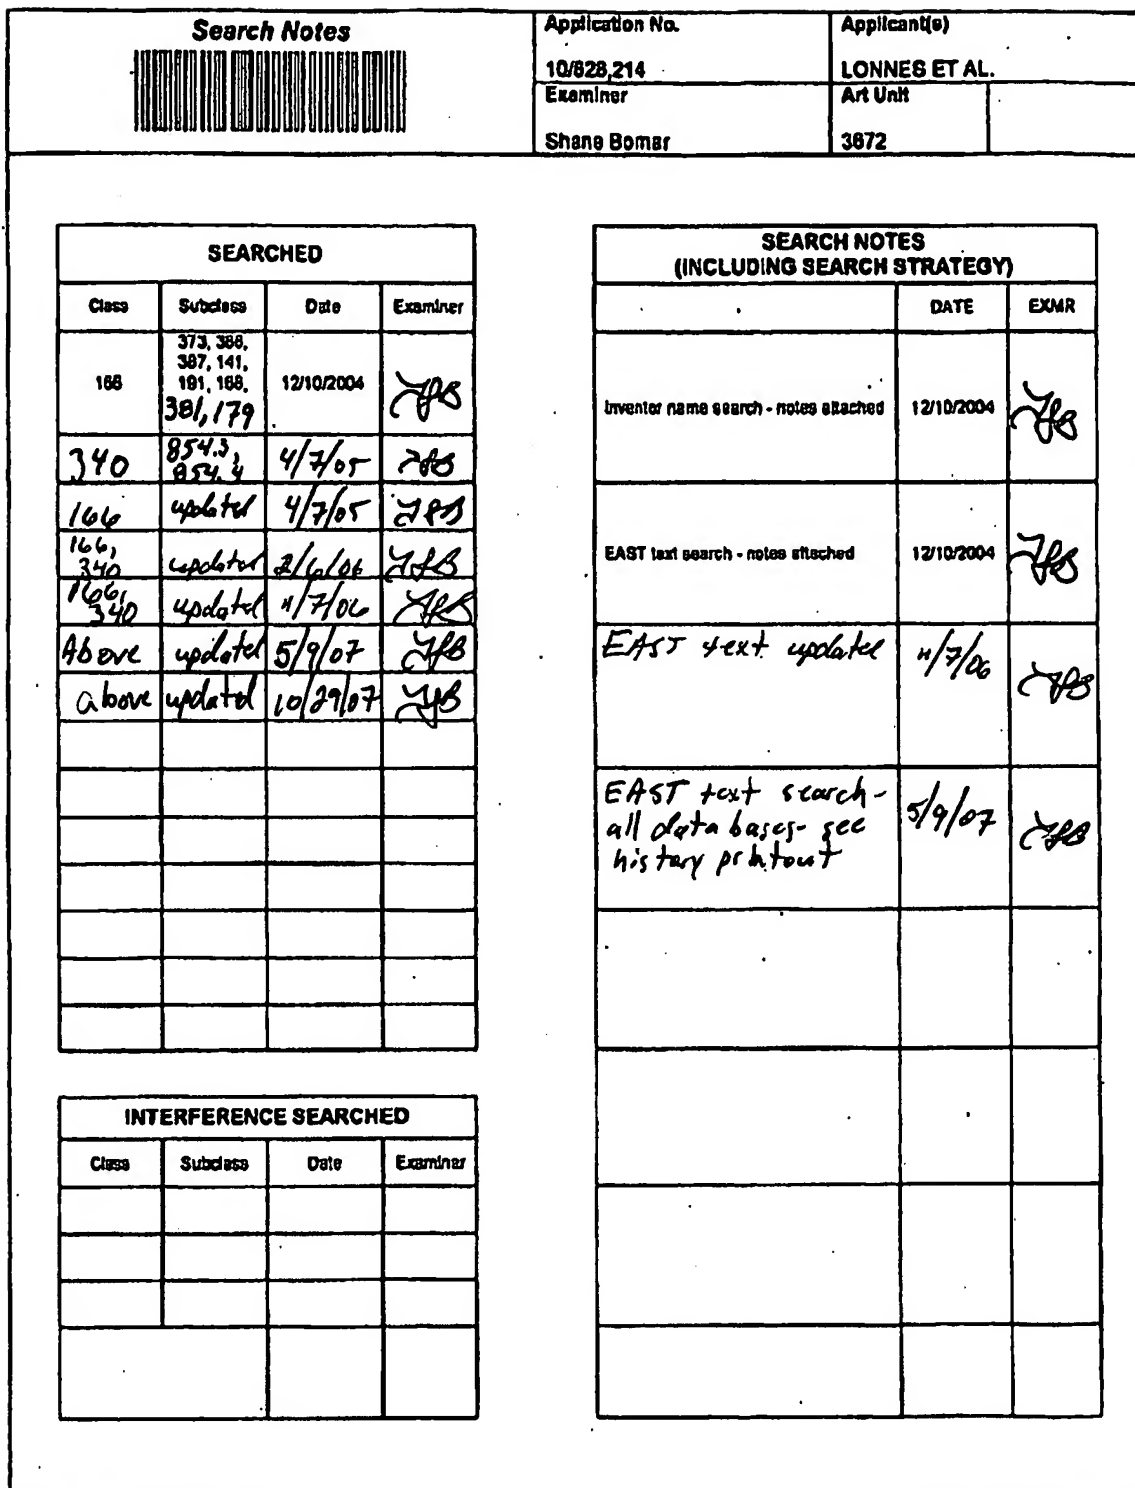 Search Notes
Application No.
10/828,214
Applicant(s)
LONNES ET AL.
Examiner
Shane Bomar
Art Unit
3672
SEARCHED
Class Subclass Date Examiner
166 373, 386,
387, 141,
191, 168,
381, 179
12/10/2004
340 854.3,
854.4
4/7/05
166 updated 4/7/05
166,
340 updated 2/6/06
166,
340 updated 11/7/06
Above updated 5/9/07
above updated 10/29/07
INTERFERENCE SEARCHED
Class Subclass Date Examiner
SEARCH NOTES
(INCLUDING SEARCH STRATEGY)
DATE EXMR
Inventor name search - notes attached 12/10/2004
EAST text search - notes attached 12/10/2004
EAST text updated 11/7/06
EAST text search -
all data bases - see
history printout
5/9/07